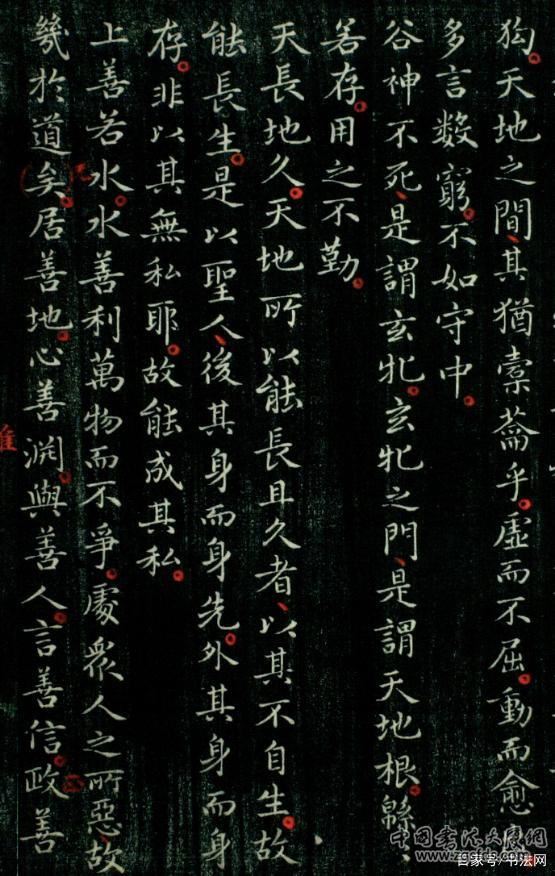 狗。天地之間、其猶橐籥乎。虛而不屈。動而愈
多言數窮。不如守中。
谷神不死、是謂玄牝。玄牝之門、是謂天地根。緜、
若存。用之不勤。
天長地久。天地所以能長且久者、以其不自生。故
能長生。是以聖人、後其身而身先。外其身而身
存。非以其無私耶。故能成其私。
上善若水。水善利萬物而不爭。處衆人之所惡、故
幾於道矣。居善地。心善淵。與善人。言善信。政善
中国书法大展网
百家号/书法网